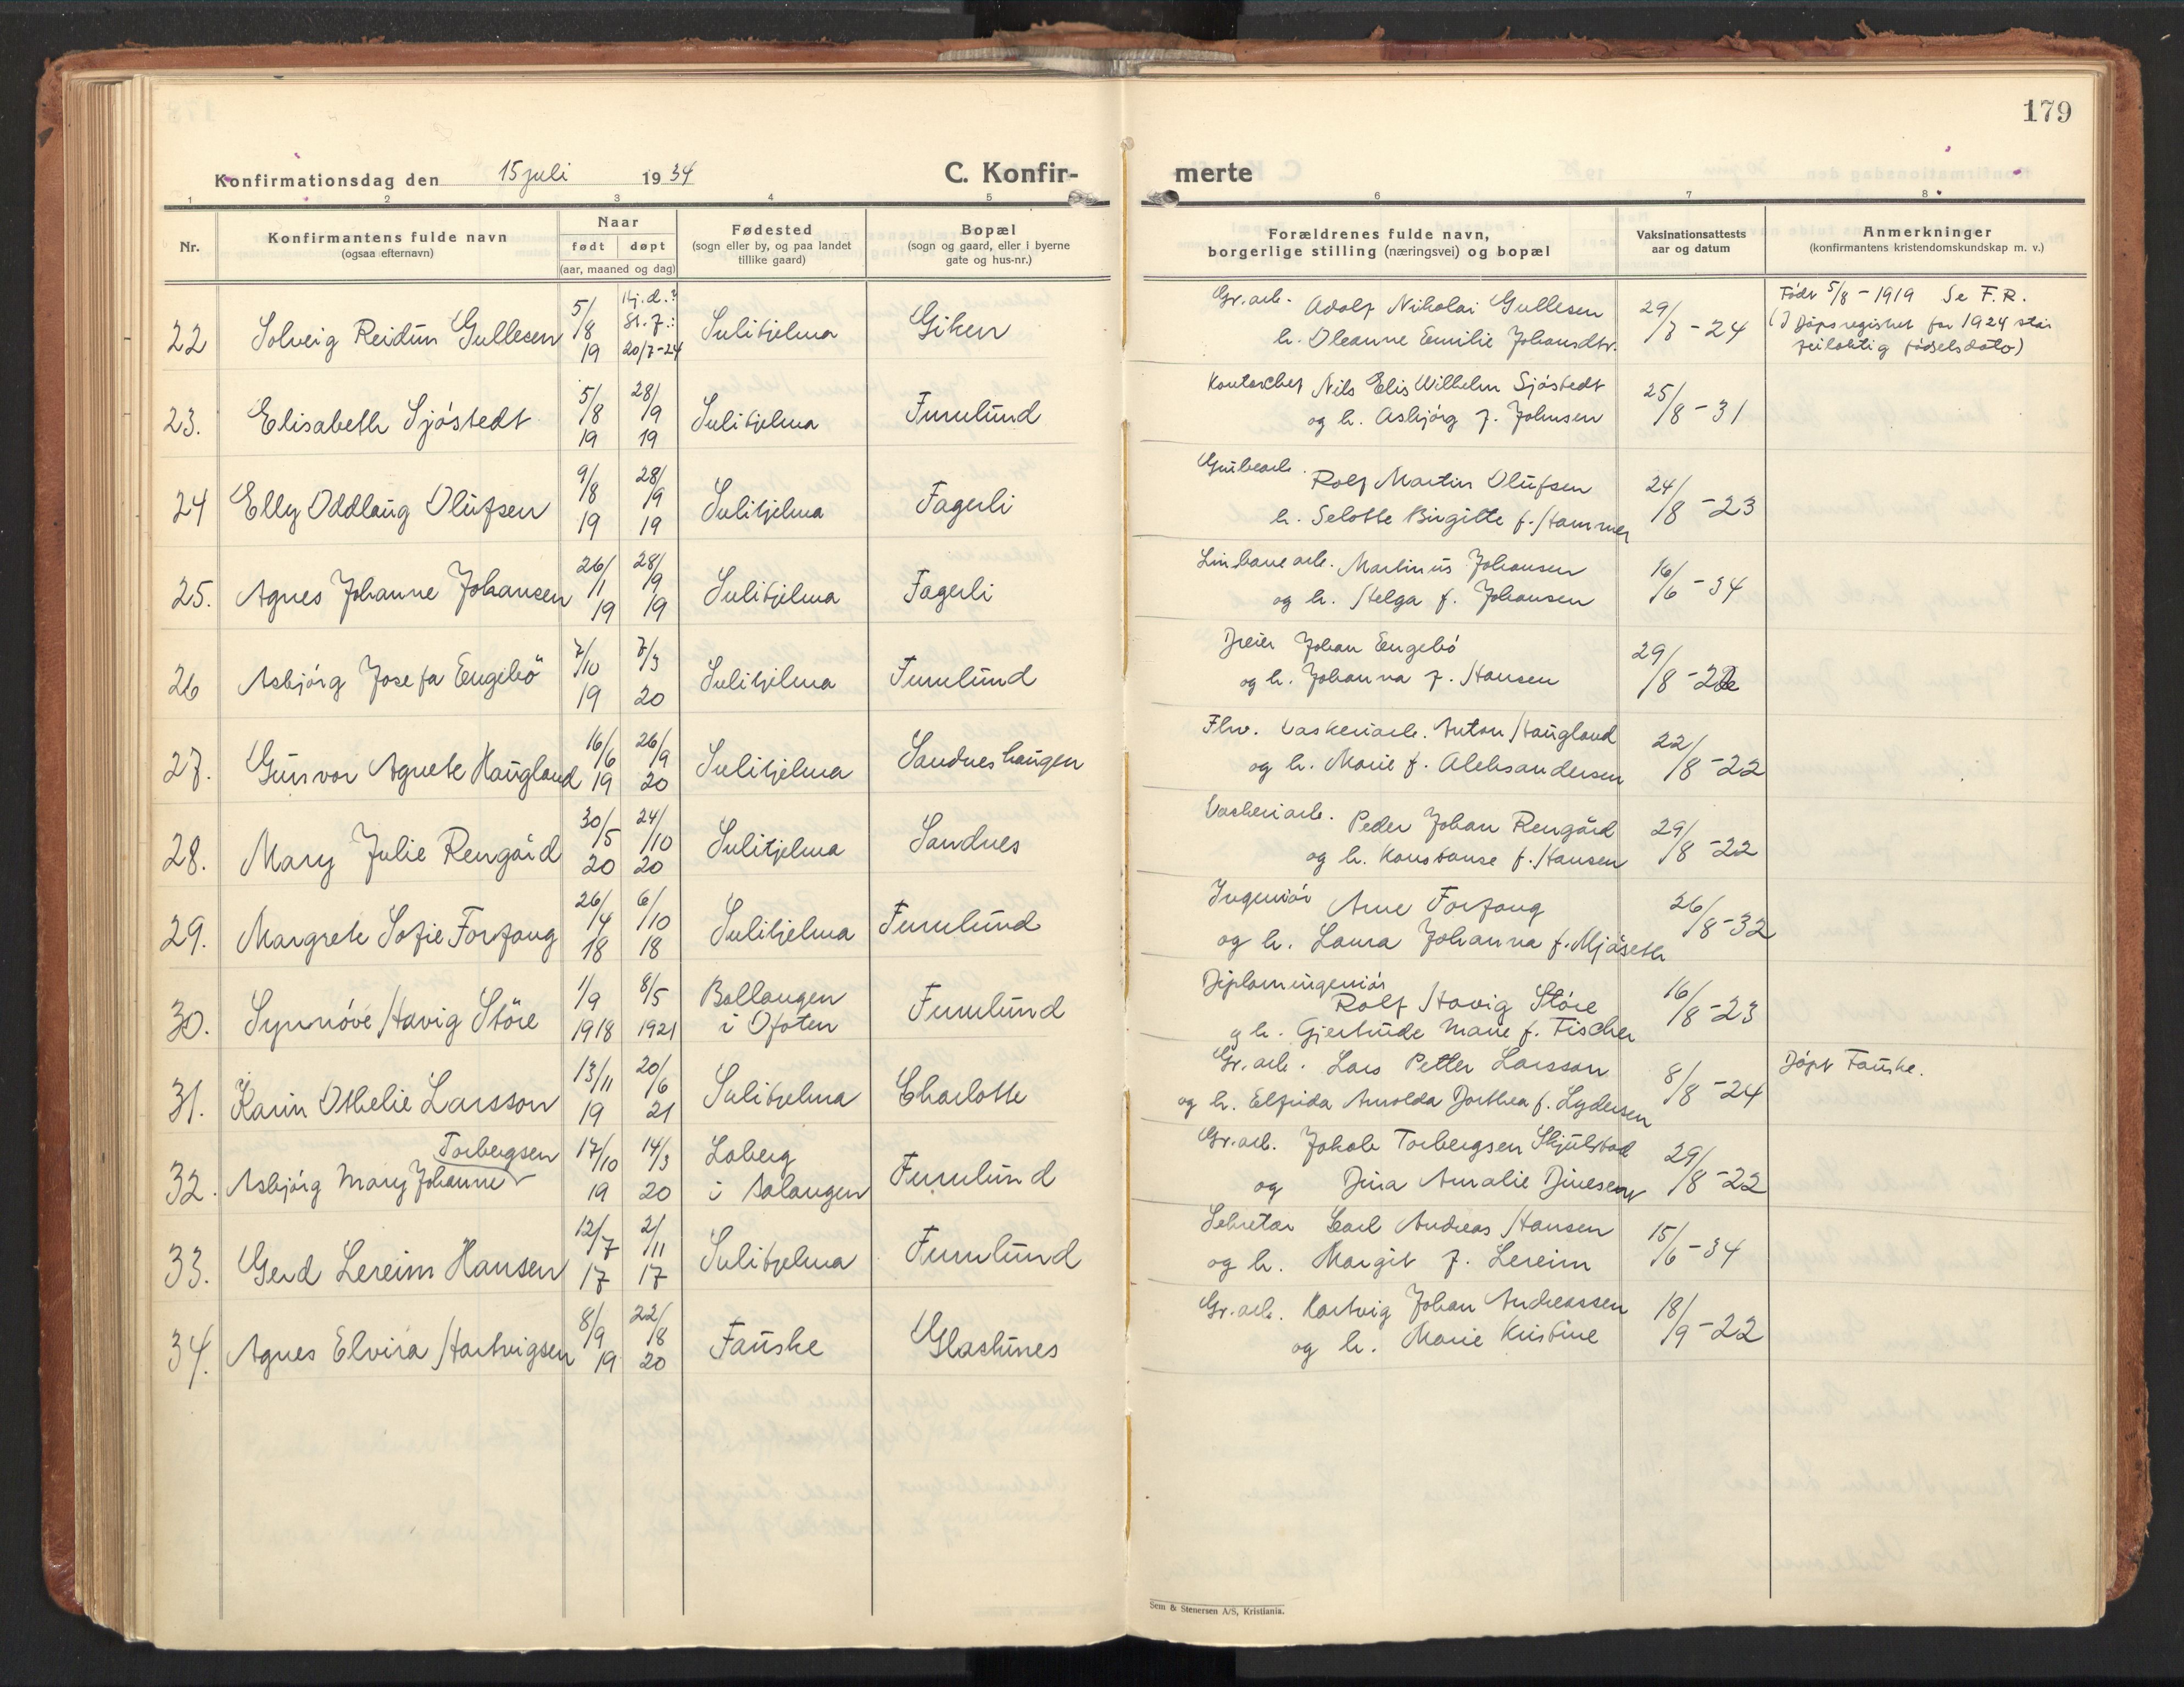 179
Konfirmationsdag den 15 juli 1934
C. Konfir-
merte
1 2 3 4 5 6 7 8
Nr.
Konfirmantens fulde navn
(ogsaa efternavn)
Naar
født døpt
(aar, maaned og dag)
Fødested
(sogn eller by, og paa landet
tillike gaard)
Bopæl
(sogn og gaard, eller i byerne
gate og hus-nr.)
Forældrenes fulde navn,
borgerlige stilling (næringsvei) og bopæl
Vaksinationsattests
aar og datum
Anmerkninger
(konfirmantens kristendomskundskap m. v.)
22 Solveig Reidun Gullesen 5/8 19 Hj.d.? St. f.: 20/7-24 Sulitjelma Giken
Gr.arb. Adolf Nikolai Gullesen
h. Oleanne Emilie Johansdtr. 29/7-24
Født 5/8-1919 Se F.R.
(I Dåpsregistret for 1924 står
feilaktig fødselsdato)
23. Elisabeth Sjöstedt 5/8 19 28/9 19 Sulitjelma Furulund
Kontorchef Nils Elis Wilhelm Sjöstedt
og h. Asbjörg f. Johnsen 25/8-31
24 Elly Oddlaug Olufsen 9/8 19 28/9 19 Sulitjelma Fagerli
Grubearb. Rolf Martin Olufsen
h. Selotte Birgitte f. Hammer 24/8-23
25. Agnes Johanne Johansen 26/1 19 28/9 19 Sulitjelma Fagerli
Linbanearb. Martinus Johansen
og h. Helga f. Johansen 16/6-34
26 Asbjörg Josefa Engebö 7/10 19 7/3 20 Sulitjelma Furulund
Dreier Johan Engebö
og h. Johanna f. Hansen 29/8-22
27. Gunvor Agnete Haugland 16/6 19 26/9 20 Sulitjelma Sandneshaugen
Flw. Vaskeriarb. Anton Haugland
og h. Marie f. Aleksandersen 22/8-22
28. Mary Julie Rengård 30/5 20 24/10 20 Sulitjelma Sandnes
Vaskeriarb. Peder Johan Rengård
og h. Konstanse f. Hansen 29/8-22
29. Margrete Sofie Forfang 26/4 18 6/10 18 Sulitjelma Furulund
Ingeniör Arne Forfang
og h. Laura Johanna f. Mjöseth 26/8-32
30. Synnöve Havig Störe 1/9 1918 8/5 1921 Ballangen
i Ofoten Furulund
Diplomingeniör
Rolf Havig Störe
g h. Gjertrude Marie f. Fischer 16/8-23
31. Karin Othelie Larsson 13/11 19 20/6 21 Sulitjelma Charlotte
Gr.arb. Lars Petter Larsson
og h. Elfrida Arnolda Dorthea f. Lydersen 8/8-24
Döpt Fauske.
32. Asbjörg Mary Johanne Torbergsen 17/10 19 14/3 20 Loberg
i Salangen Furulund
Gr.arb. Jakob Torbergsen Skjulstad
og Dina Amalie Dinesen 29/8-22
33. Gerd Lereim Hansen 12/7 17 2/11 17 Sulitjelma Furulund
Sekretær Carl Andreas Hansen
og h. Margit f. Lereim 15/6-34
34. Agnes Elvira Hartvigsen 8/9 19 22/8 20 Fauske Glastunes
Gr.arb. Hartvig Johan Andreassen
og h. Marie Kristine 18/9-22
Sem & Stenersen A/S, Kristiania.